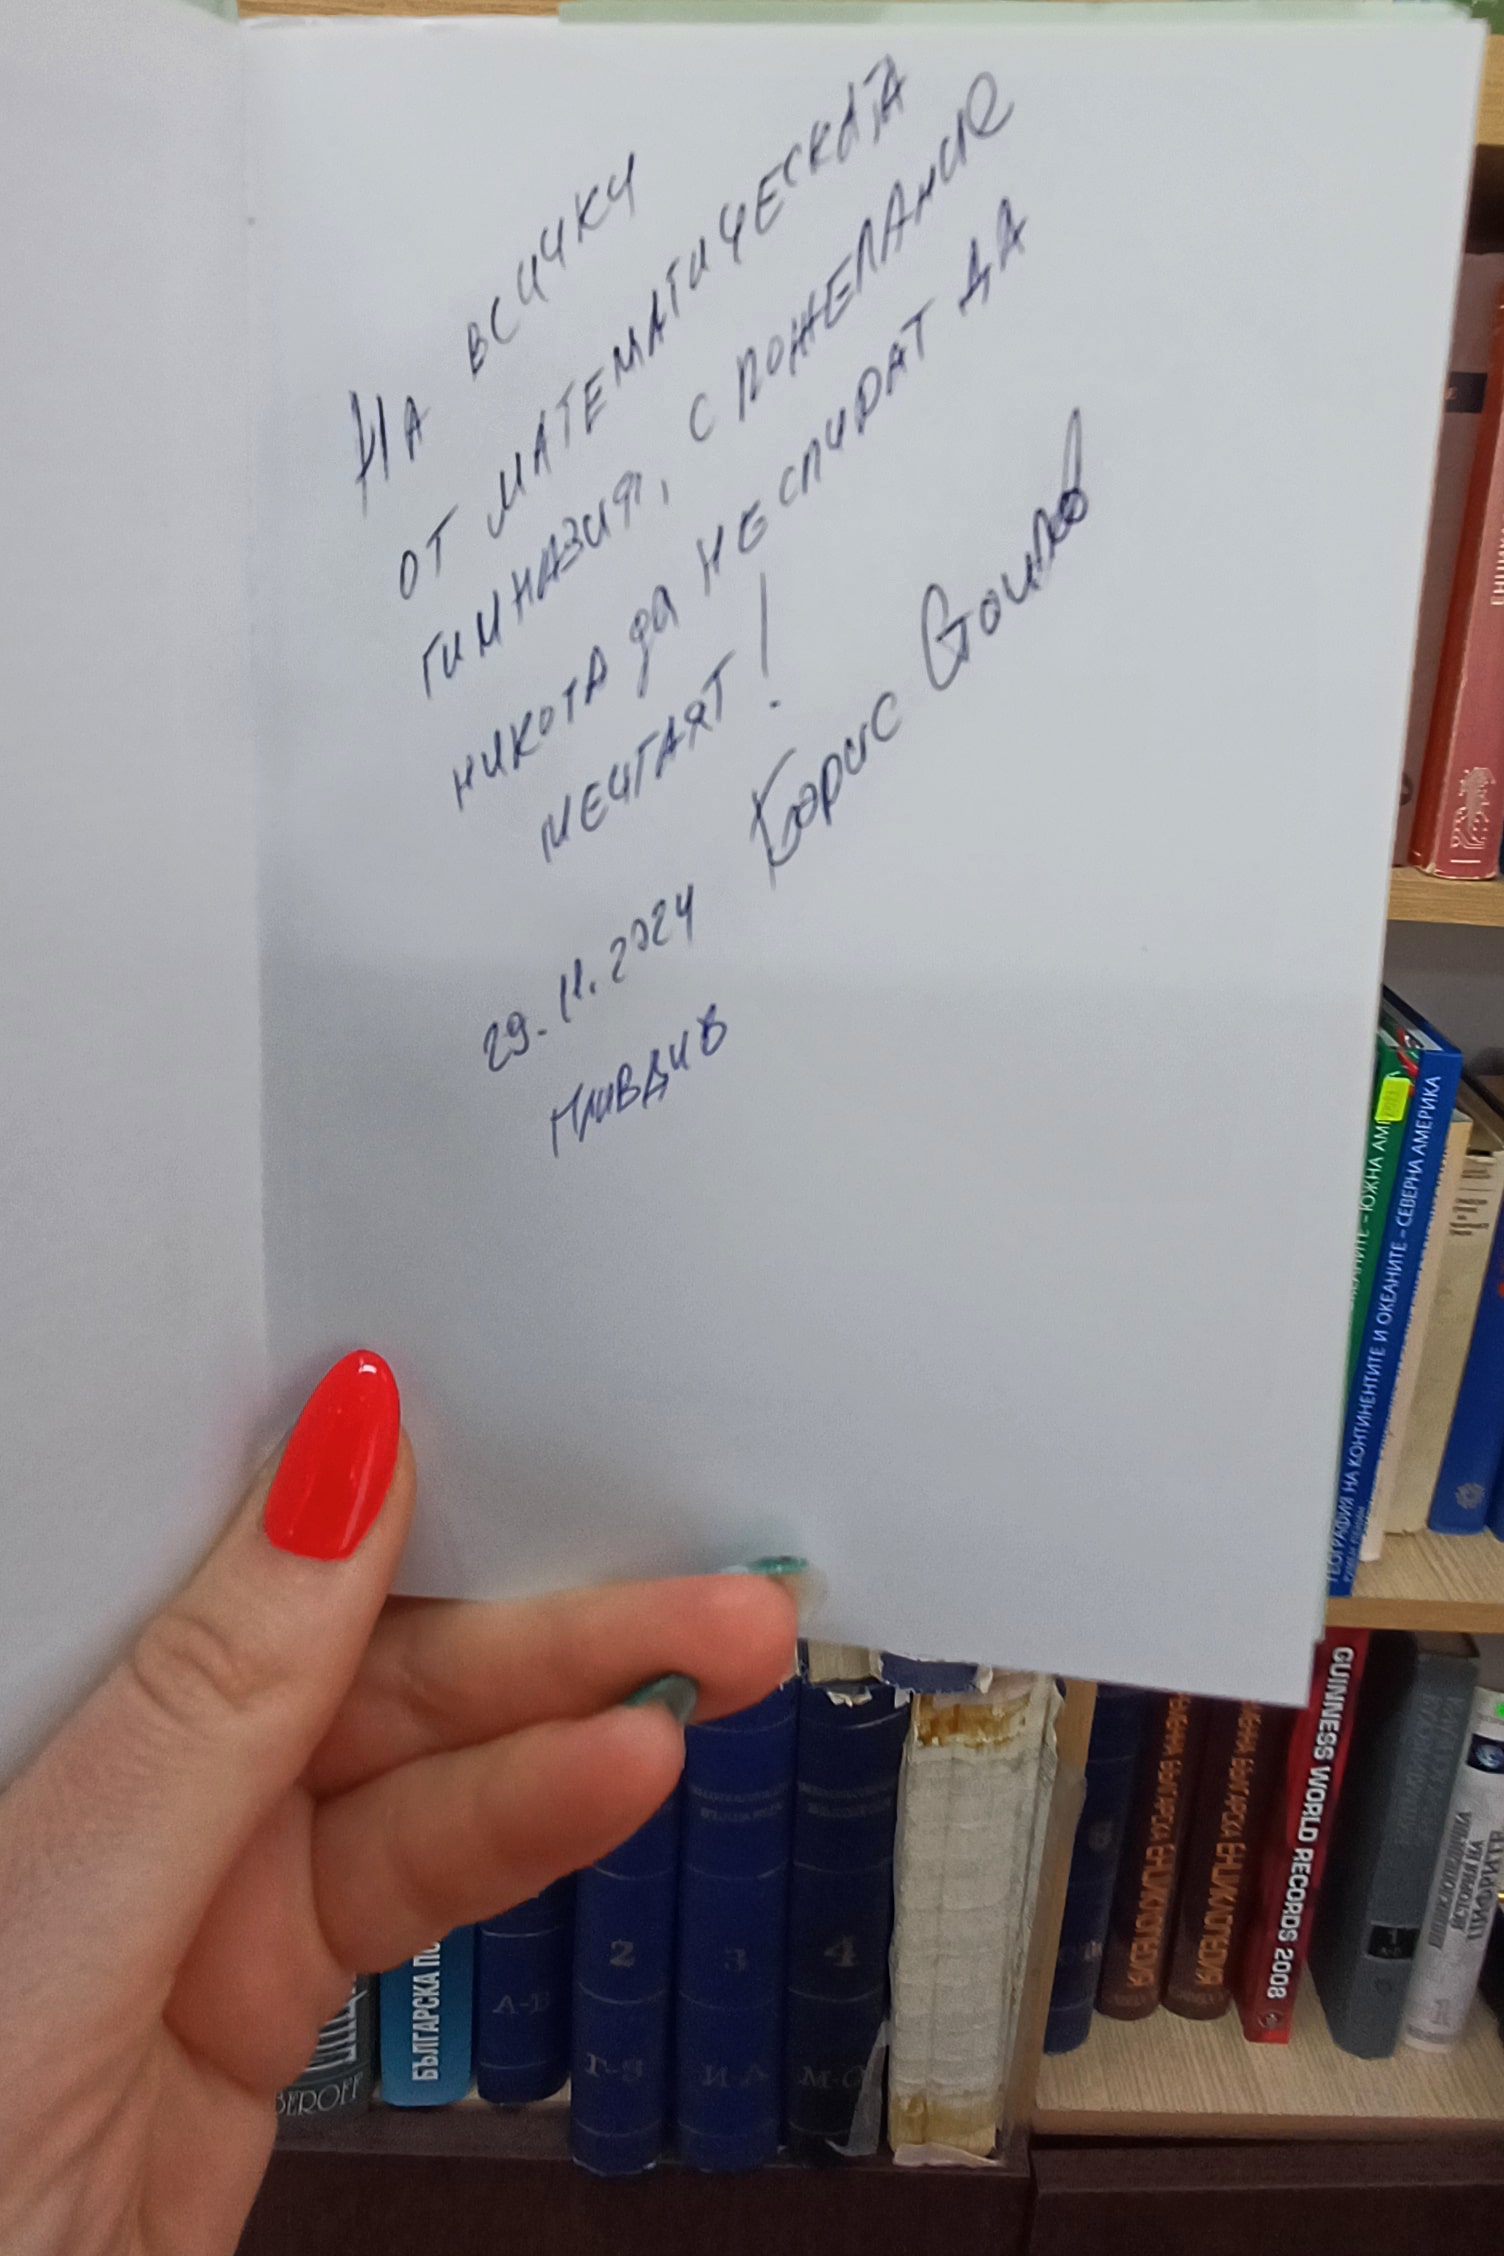 На всички
от математическата
гимназия, с пожелание
никога да не спират да
мечтаят!
Борис Стоилов
29.11.2024
Пловдив
ГЕОГРАФИЯ НА КОНТИНЕНТИТЕ И ОКЕАНИТЕ - СЕВЕРНА АМЕРИКА
ОКЕАНИТЕ - ЮЖНА АМЕ
GUINNESS WORLD RECORDS 2008
ЕНЦИКЛОПЕДИЯ
ЕНЦИКЛОПЕДИЯ
ИСТОРИЯ НА
ЦИФРИТЕ
1
БЪЛГАРСКА ПО
BEROFF
А-В
2
Г-З
3
И-Л
4
М-О